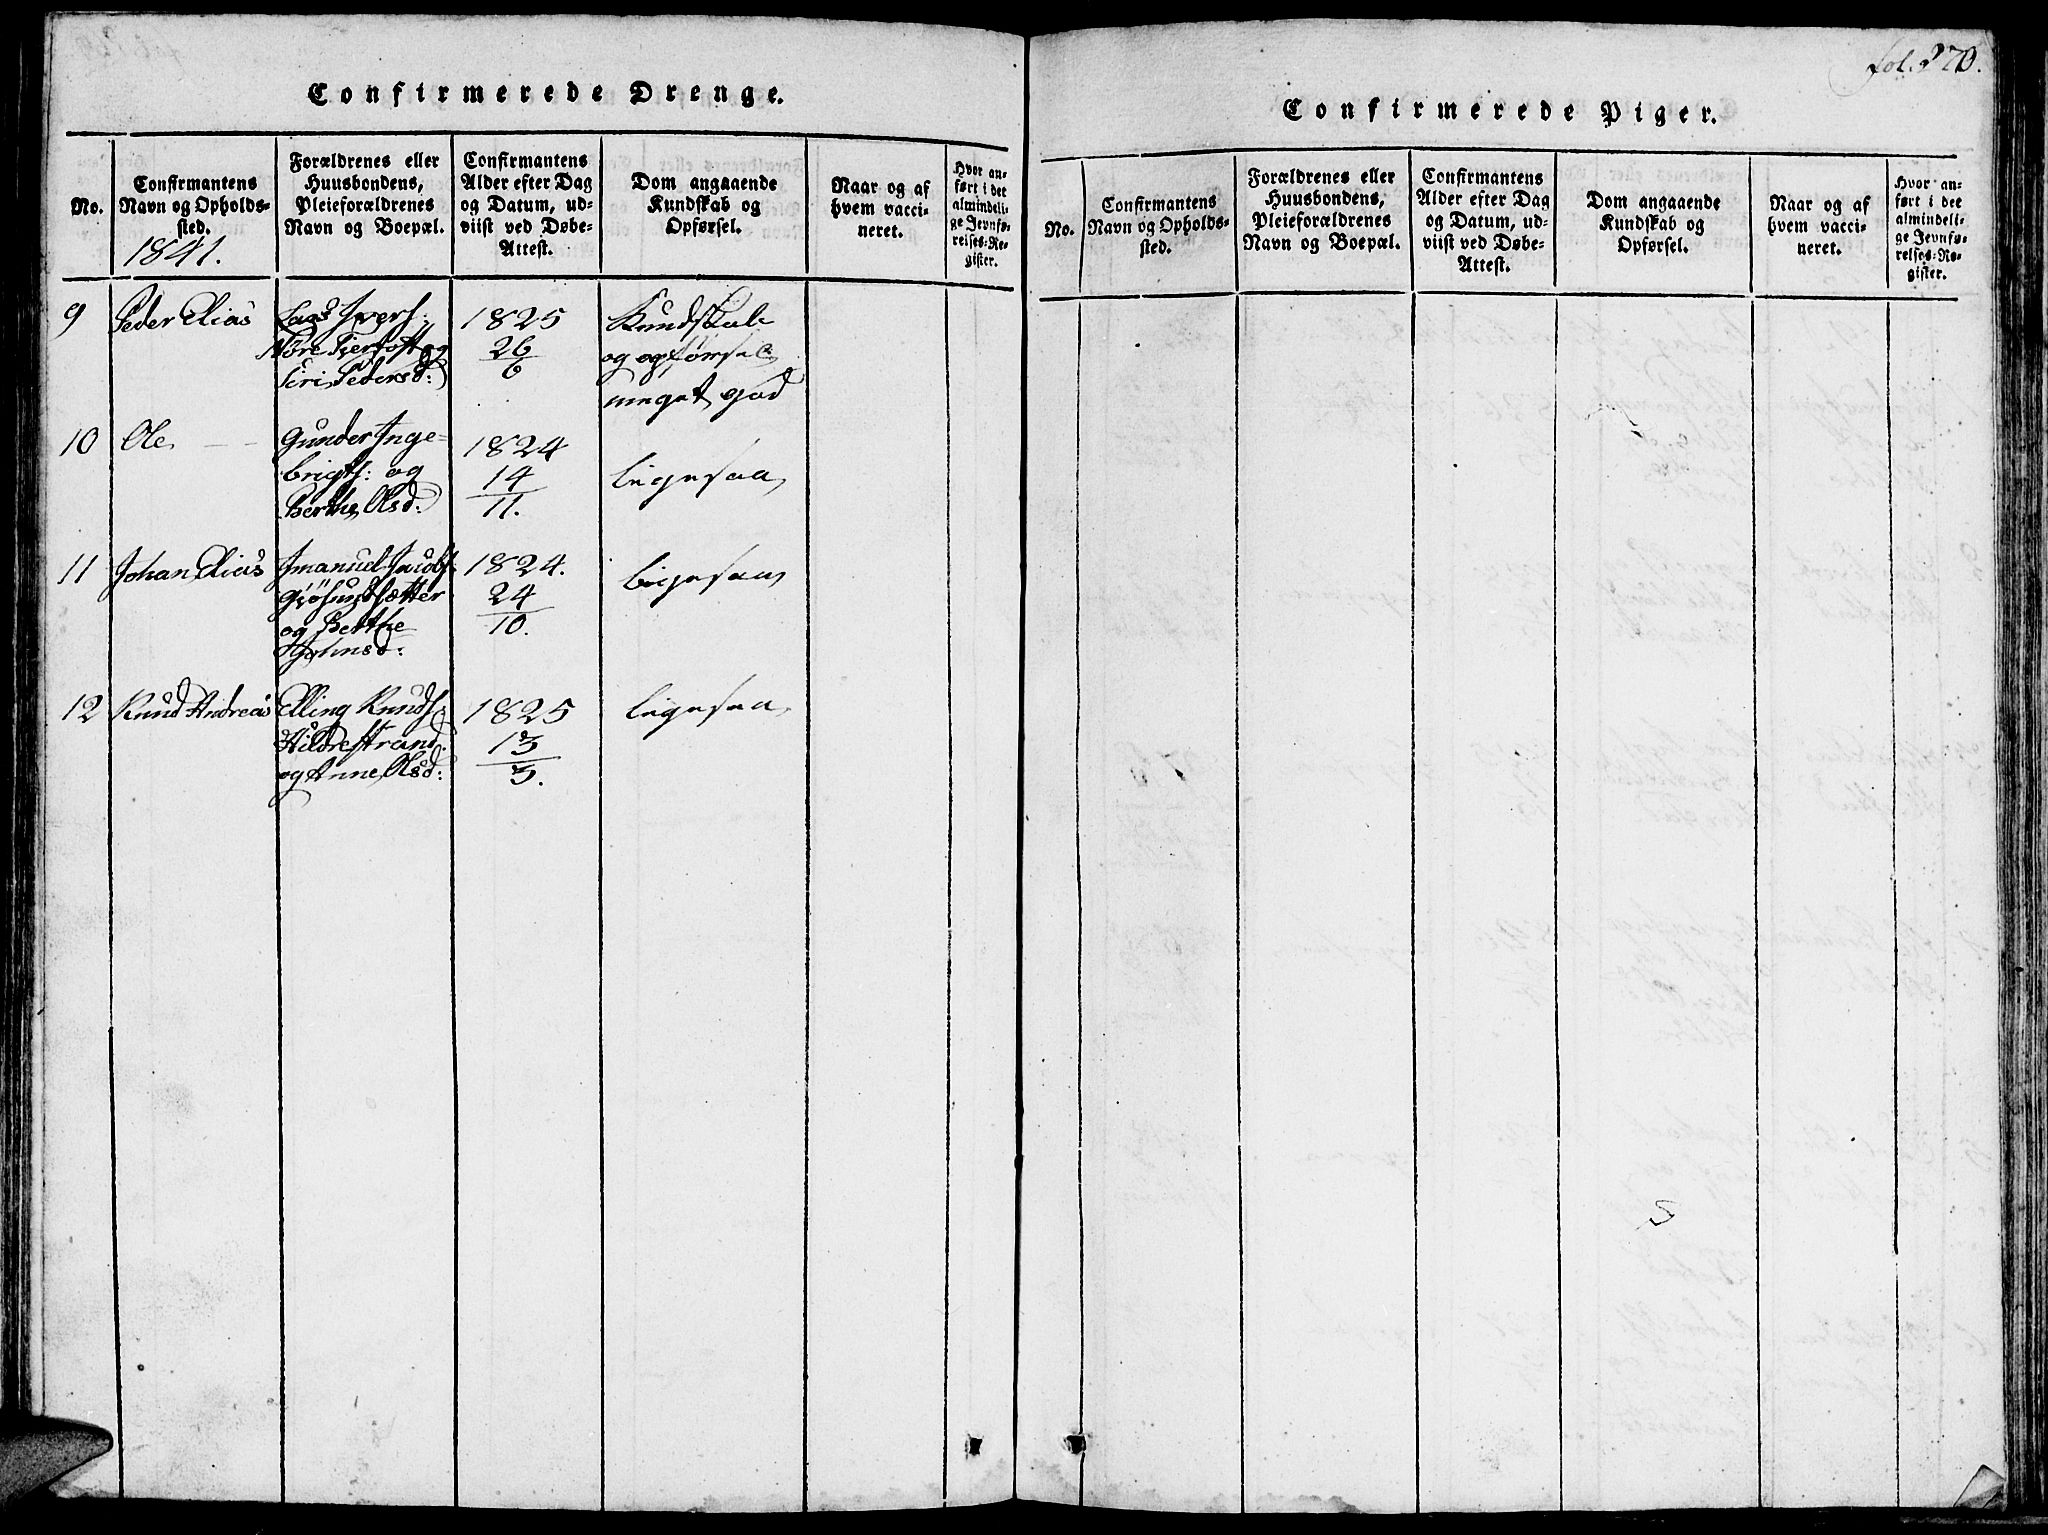 Confirmerede Drenge.
No.
Confirmantens
Navn og Opholds-
sted.
1841.
Forældrenes eller
Huusbondens,
Pleieforældrenes
Navn og Boepæl.
Confirmantens
Alder efter Dag
og Datum, ud-
viist ved Døbe-
Attest.
Dom angaaende
Kundskab og
Opførsel.
Naar og af
hvem vacci-
neret.
Hvor an-
ført i det
almindeli-
ge Jevnfø-
relses-Re-
gister.
9
Peder Elias
Lars Ivers:
Nöre og
Siri Pedersd:
1825
26
6
Kundskab
og opförsel
meget god
10
Ole
Gunder Inge-
brigts: og
Berthe Olsd:
1824
14
11.
ligesaa
11
Johan Elias
Imanuel Jacobs:
Gjösundsætter
og Berthe
Johnsd:
1824.
24
10.
ligesaa
12
Knud Andreas
Elling Knuds:
Hildrestrand
og Anne Olsd:
1825
13
3.
ligesaa
fol. 270.
Confirmerede Piger.
No.
Confirmantens
Navn og Opholds-
sted.
Forældrenes eller
Huusbondens,
Pleieforældrenes
Navn og Boepæl.
Confirmantens
Alder efter Dag
og Datum, ud-
viist ved Døbe-
Attest.
Dom angaaende
Kundskab og
Opførsel.
Naar og af
hvem vacci-
neret.
Hvor an-
ført i det
almindeli-
ge Jevnfø-
relses-Re-
gister.